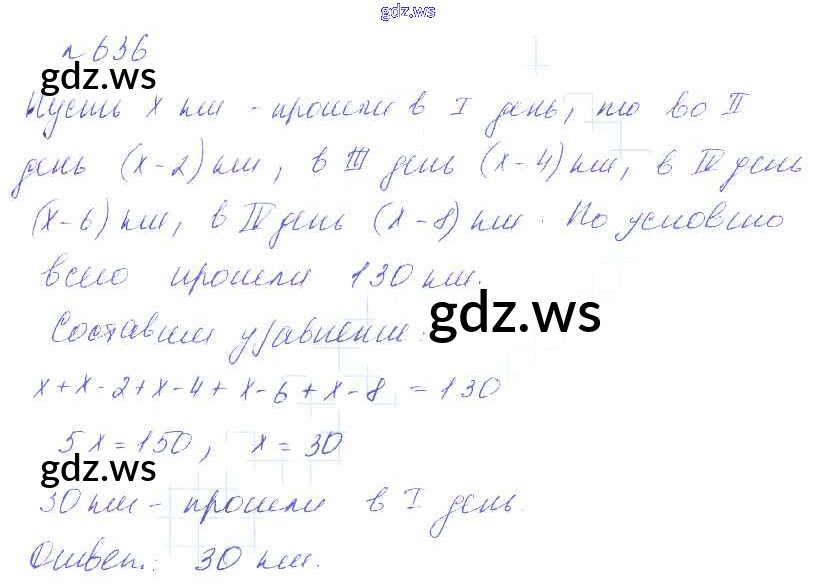 gdz.ws
№636
gdz.ws
Пусть x км - прошли в I день, то во II
день (x-2) км, в III день (x-4) км, в IV день
(x-6) км, в IV день (x-8) км. По условию
всего прошли 130 км.
gdz.ws
Составим уравнение:
x+x-2+x-4+x-6+x-8=130
5x=150, x=30
gdz.ws
30 км - прошли в I день.
Ответ: 30 км.